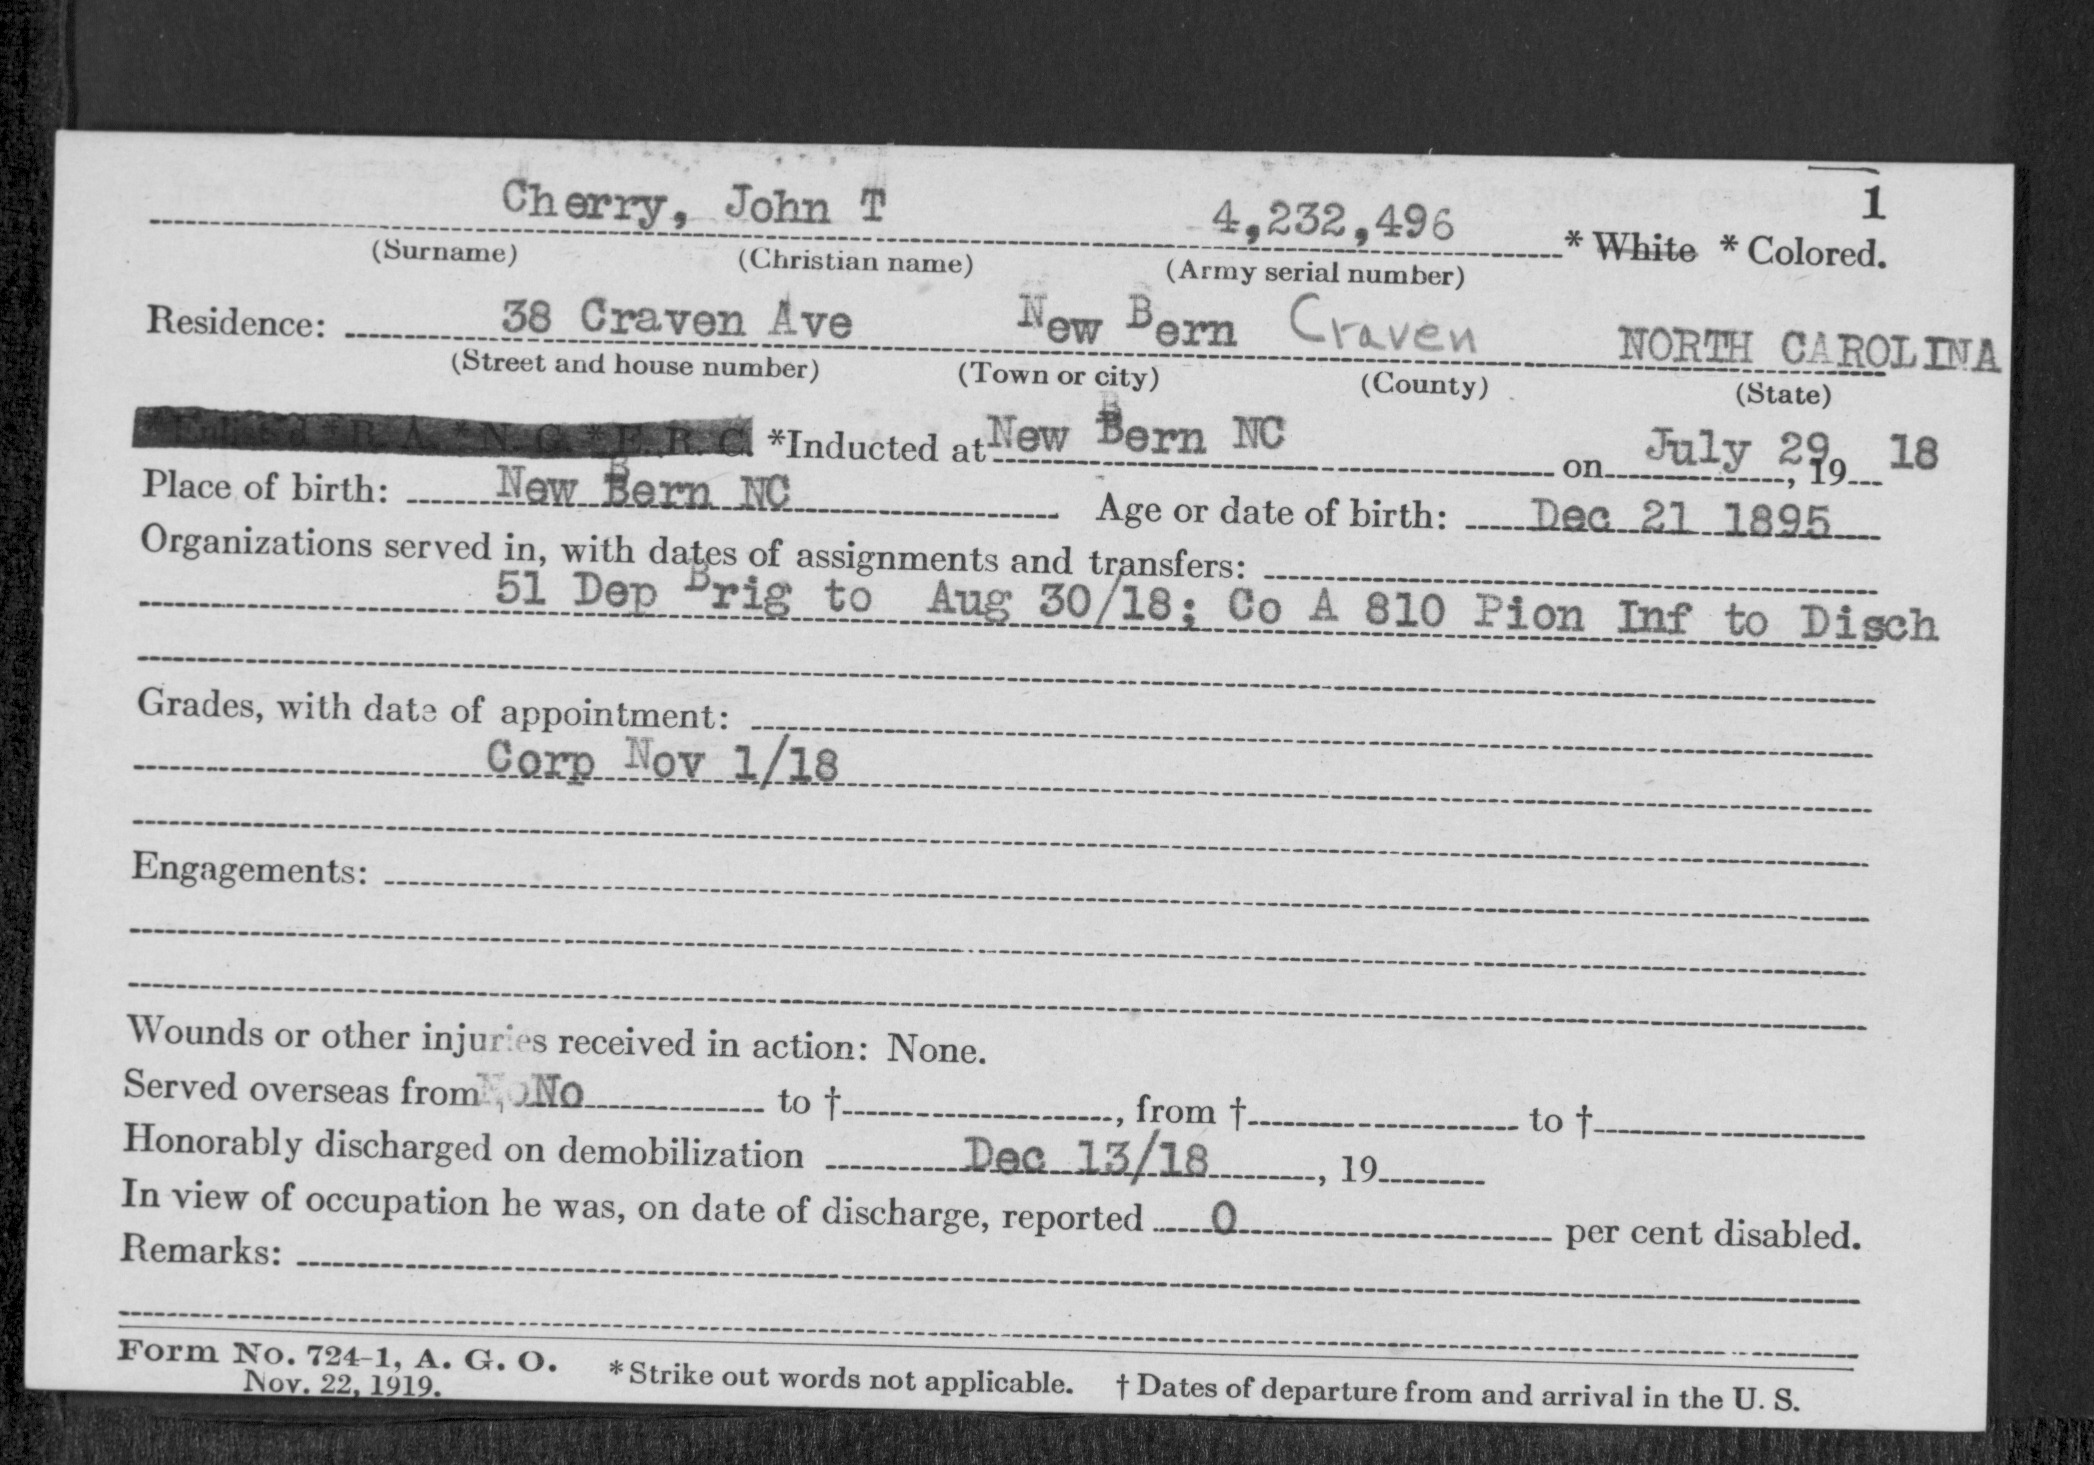 1
Cherry, John T 4,232,496 * White * Colored.
(Surname) (Christian name) (Army serial number)
Residence: 38 Craven Ave New Bern Craven NORTH CAROLINA
(Street and house number) (Town or city) (County) (State)
*Enlisted *R. A. *N. G. *E. R. C. *Inducted at New Bern NC on July 29, 19 18
Place of birth: New Bern NC Age or date of birth: Dec 21 1895
Organizations served in, with dates of assignments and transfers:
51 Dep Brig to Aug 30/18; Co A 810 Pion Inf to Disch
Grades, with date of appointment:
Corp Nov 1/18
Engagements:
Wounds or other injuries received in action: None.
Served overseas from No No to †, from † to †
Honorably discharged on demobilization Dec 13/18, 19
In view of occupation he was, on date of discharge, reported 0 per cent disabled.
Remarks:
Form No. 724-1, A. G. O. *Strike out words not applicable. † Dates of departure from and arrival in the U. S.
Nov. 22, 1919.